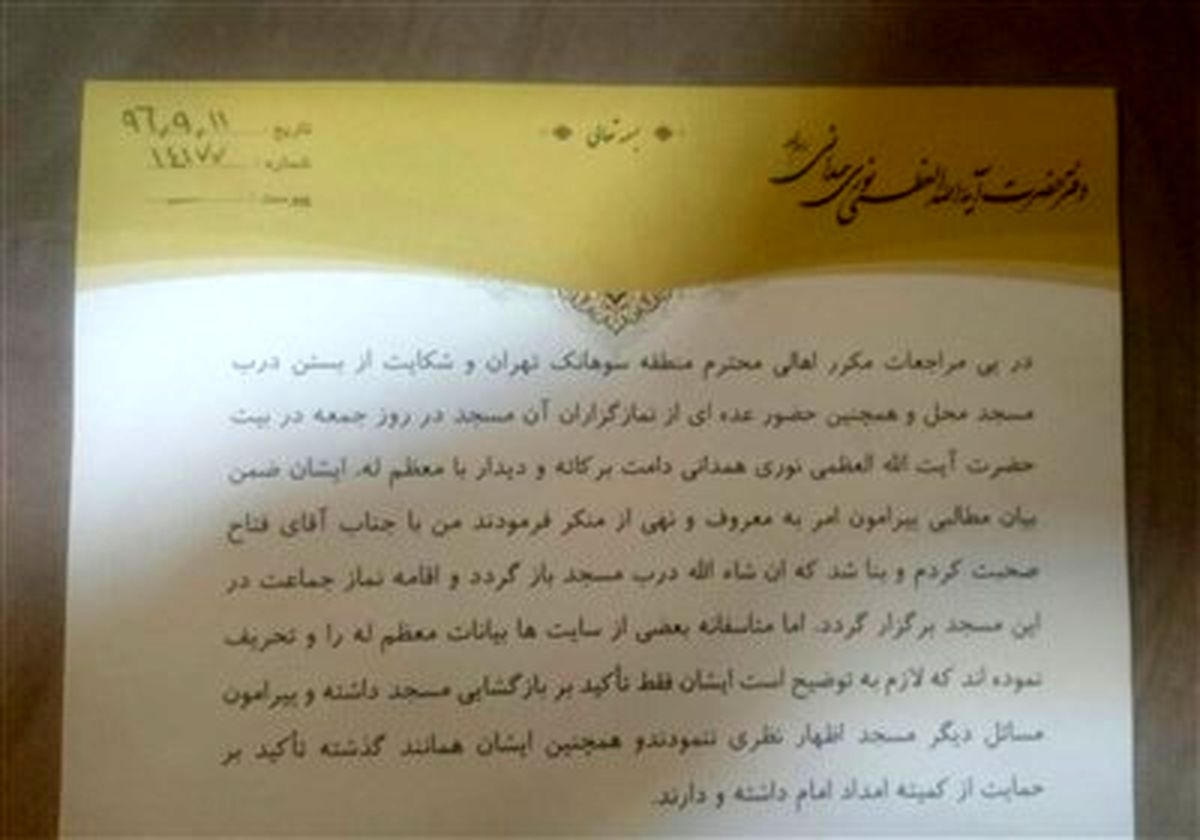 دفتر حضرت آیة الله العظمی نوری همدانی
بسمه تعالی
تاریخ: ۹۶٫۹٫۱۱
شماره: ۱۴۱۷۷
پیوست:
در پی مراجعات مکرر اهالی محترم منطقه سوهانک تهران و شکایت از بستن درب
مسجد محل و همچنین حضور عده ای از نمازگزاران آن مسجد در روز جمعه در بیت
حضرت آیت الله العظمی نوری همدانی دامت برکاته و دیدار با معظم له. ایشان ضمن
بیان مطالبی پیرامون امر به معروف و نهی از منکر فرمودند من با جناب آقای فتاح
صحبت کردم و بنا شد که ان شاء الله درب مسجد باز گردد و اقامه نماز جماعت در
این مسجد برگزار گردد. اما متاسفانه بعضی از سایت ها بیانات معظم له را و تحریف
نموده اند که لازم به توضیح است ایشان فقط تأکید بر بازگشایی مسجد داشته و پیرامون
مسائل دیگر مسجد اظهار نظری ننمودندو همچنین ایشان همانند گذشته تأکید بر
حمایت از کمیته امداد امام داشته و دارند.